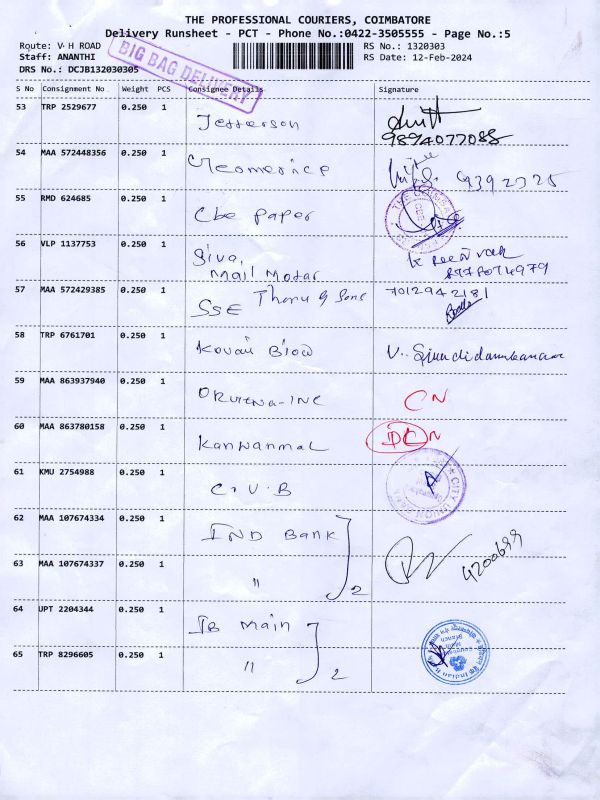 THE PROFESSIONAL COURIERS, COIMBATORE
Delivery Runsheet - PCT - Phone No.:0422-3505555 - Page No.:5
Route: V H ROAD RS No.: 1320303
Staff: ANANTHI RS Date: 12-Feb-2024
DRS No.: DCJB132030305
BIG BAG DELIVERY
S No Consignment No Weight PCS Consignee Details Signature
53 TRP 2529677 0.250 1 Jefferson
9894077088
54 MAA 572448356 0.250 1
55 RMD 624685 0.250 1 Cbe Paper
56 VLP 1137753 0.250 1 Siva,
Mail Motar
57 MAA 572429385 0.250 1 SSE Thanu & Sons 7012942181
58 TRP 6761701 0.250 1 Kovai Blow
59 MAA 863937940 0.250 1 CN
60 MAA 863780158 0.250 1 Kanwanmal DCN
61 KMU 2754988 0.250 1 C.U.B CITY UNION BANK
62 MAA 107674334 0.250 1 IND Bank
63 MAA 107674337 0.250 1 " 2 4200699
64 UPT 2204344 0.250 1 IB Main
65 TRP 8296605 0.250 1 " 2